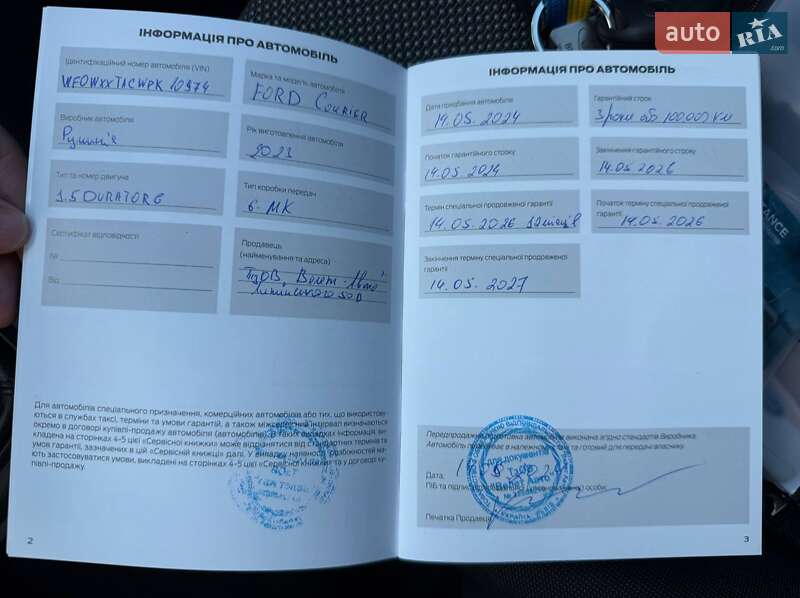 auto RIA .com
ІНФОРМАЦІЯ ПРО АВТОМОБІЛЬ
Ідентифікаційний номер автомобіля (VIN)
WF0WXXTACWPK 10974
Марка та модель автомобіля
FORD COURIER
Виробник автомобіля
Румунія
Рік виготовлення автомобіля
2023
Тип та номер двигуна
1.5 DURATORG
Тип коробки передач
6-МК
Сертифікат відповідності
№
Від
Продавець
(найменування та адреса)
ТзОВ, Велет-Авто
Липинського 50В
Для автомобілів спеціального призначення, комерційних автомобілів або тих, що використову-
ються в службах таксі, терміни та умови гарантій, а також міжсервісний інтервал визначаються
окремо в договорі купівлі-продажу автомобіля (автомобілів). У таких випадках інформація, ви-
кладена на сторінках 4-5 цієї «Сервісної книжки» може відрізнятися від стандартних термінів та
умов гарантій, зазначених в цій «Сервісній книжці» далі. У випадку наявності розбіжностей ма-
ють застосовуватися умови, викладені на сторінках 4-5 цієї «Сервісної книжки» та у договорі ку-
півлі-продажу.
2
ІНФОРМАЦІЯ ПРО АВТОМОБІЛЬ
Дата придбання автомобіля
14.05.2024
Гарантійний строк
3 роки або 100.000 км
Початок гарантійного строку
14.05 2024
Закінчення гарантійного строку
14.05 2026
Термін спеціальної продовженої гарантії
14.05.2026 12 місяців
Початок терміну спеціальної продовженої
гарантії
14.05.2026
Закінчення терміну спеціальної продовженої
гарантії
14.05.2027
Передпродажна підготовка автомобіля виконана згідно стандартів Виробника.
Автомобіль перебуває в належному стані та готовий для передачі власнику.
Дата:
Для документів
ТзОВ
"Велет Авто"
ПІБ та підпис особи:
Печатка Продавця
УКРАЇНА
3